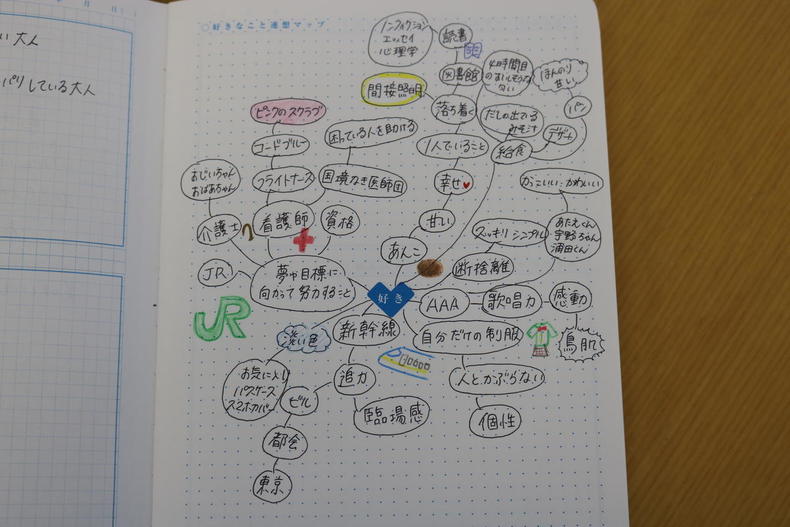 い大人
パリしている大人
好きなこと連想マップ
ノンフィクション
エッセイ
心理学
読書
図書館
4時間目
のおいしそうな
匂い
ほんのり
甘い
間接照明
落ち着く
だしの出てる
みそ汁
パン
デザート
ピンクのスクラブ
困っている人を助ける
1人でいること
給食
コードブルー
おじいちゃん
おばあちゃん
フライトナース
国境なき医師団
幸せ
かっこいい・かわいい
介護士
看護師
資格
甘い
スッキリ シンプル
宇野ちゃん
浦田くん
あんこ
断捨離
JR
夢や目標に
向かって努力すること
好き
AAA
歌唱力
感動
JR
渋い色
新幹線
自分だけの制服
鳥肌
お気に入り
パスケース
スマホカバー
ビル
迫力
人とかぶらない
臨場感
個性
都会
東京